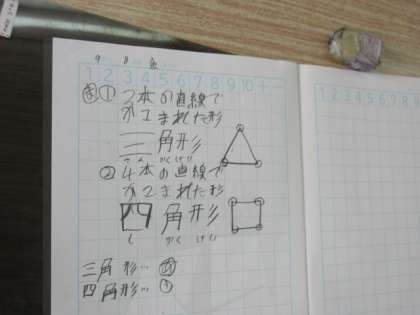 9 8 金
1 2 3 4 5 6 7 8 9 10
ま ① 3本の直線で
かこまれた形
三角形
さんかくけい
② 4本の直線で
かこまれた形
四角形
しかくけい
三角形…
四角形…
1 2 3 4 5 6 7 8 9 10